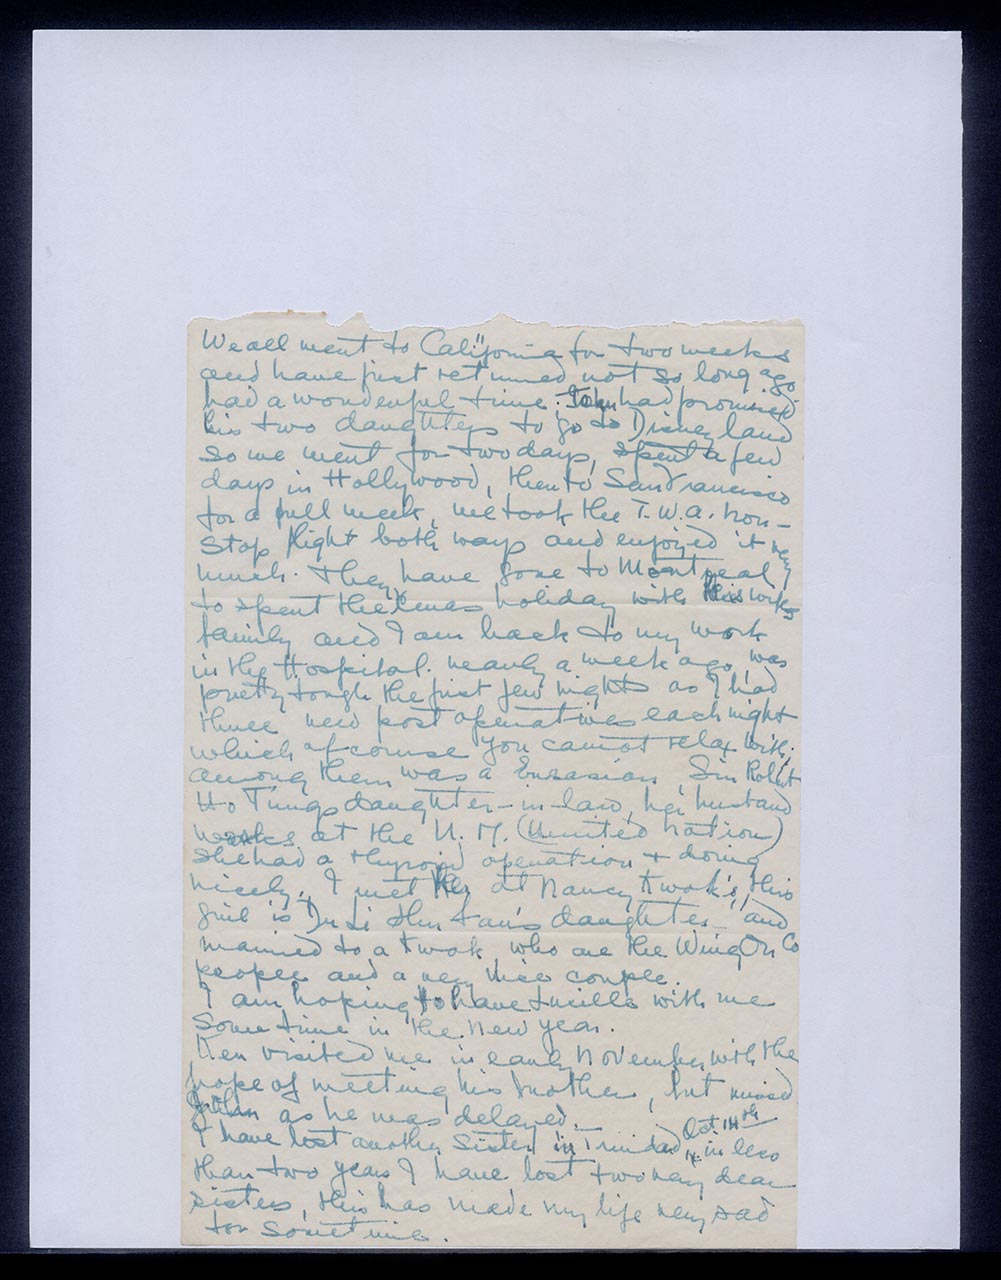 We all went to California for two weeks
and have just returned not so long ago
had a wonderful time. John had promised
his two daughters to go to Disneyland
so we went for two days, spent a few
days in Hollywood, then to San Francisco
for a full week, we took the T.W.A. non-
stop flight both ways and enjoyed it very
much. They have gone to Montreal
to spent the Xmas holiday with his wifes
family and I am back to my work
in the Hospital. nearly a week ago, was
pretty tough the first few nights as I had
three new post operatives each night
which of course you cannot relax with,
among them was a Eurasian Sir Robert
Ho Tungs daughter-in-law, her husband
works at the U.N. (United Nation)
she had a thyroid operation + doing
nicely. I met her at Nancy Kwok's, this
girl is Dr Li Shu Fan's daughter and
married to a Kwok, who are the Wing On Co
people and a very nice couple.
I am hoping to have Lucille with me
some time in the New Year.
Ken visited me in early November with the
hope of meeting his brother, but missed
John as he was delayed.
I have lost another sister in Trinidad Oct 14th in less
than two years I have lost two very dear
sisters, this has made my life very sad
for sometime.